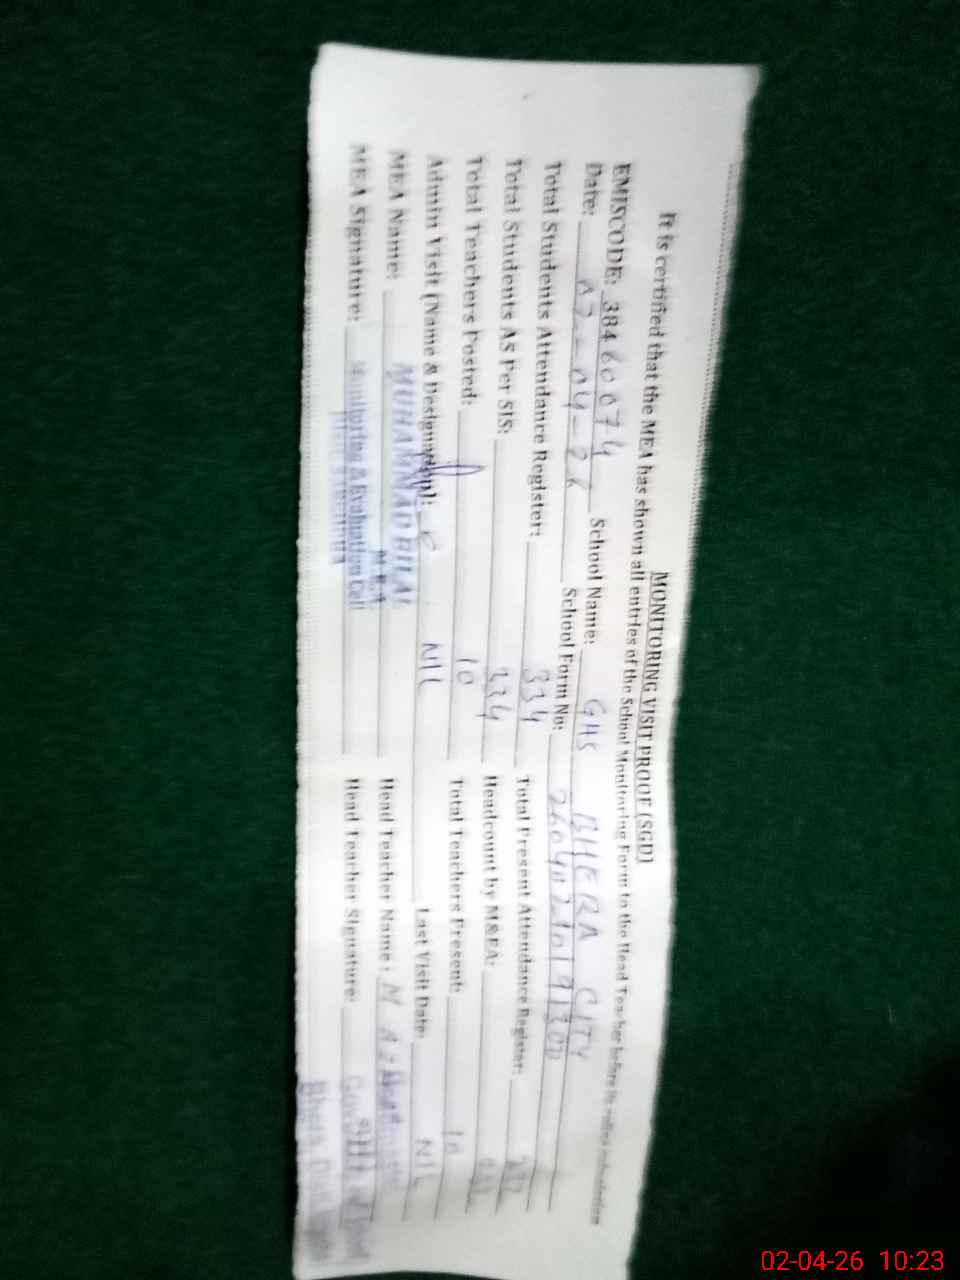 MONITORING VISIT PROOF (SGD)
It is certified that the MEA has shown all entries of the School Monitoring Form to the Head Teacher before its online submission
EMISCODE: 38460074 School Name: GHS BHERA CITY
Date: 02-04-26 School Form No:
Total Students Attendance Register: 334 Total Present Attendance Register:
Total Students AS Per SIS: 334 Headcount by M&EA:
Total Teachers Posted: 10 Total Teachers Present: 10
Admin Visit (Name & Designation): NIL Last Visit Date: NIL
MEA Name: MUHAMMAD BILAL Head Teacher Name: M A
M.E.A
MEA Signature: Monitoring & Evaluation Cell Head Teacher Signature:
02-04-26 10:23